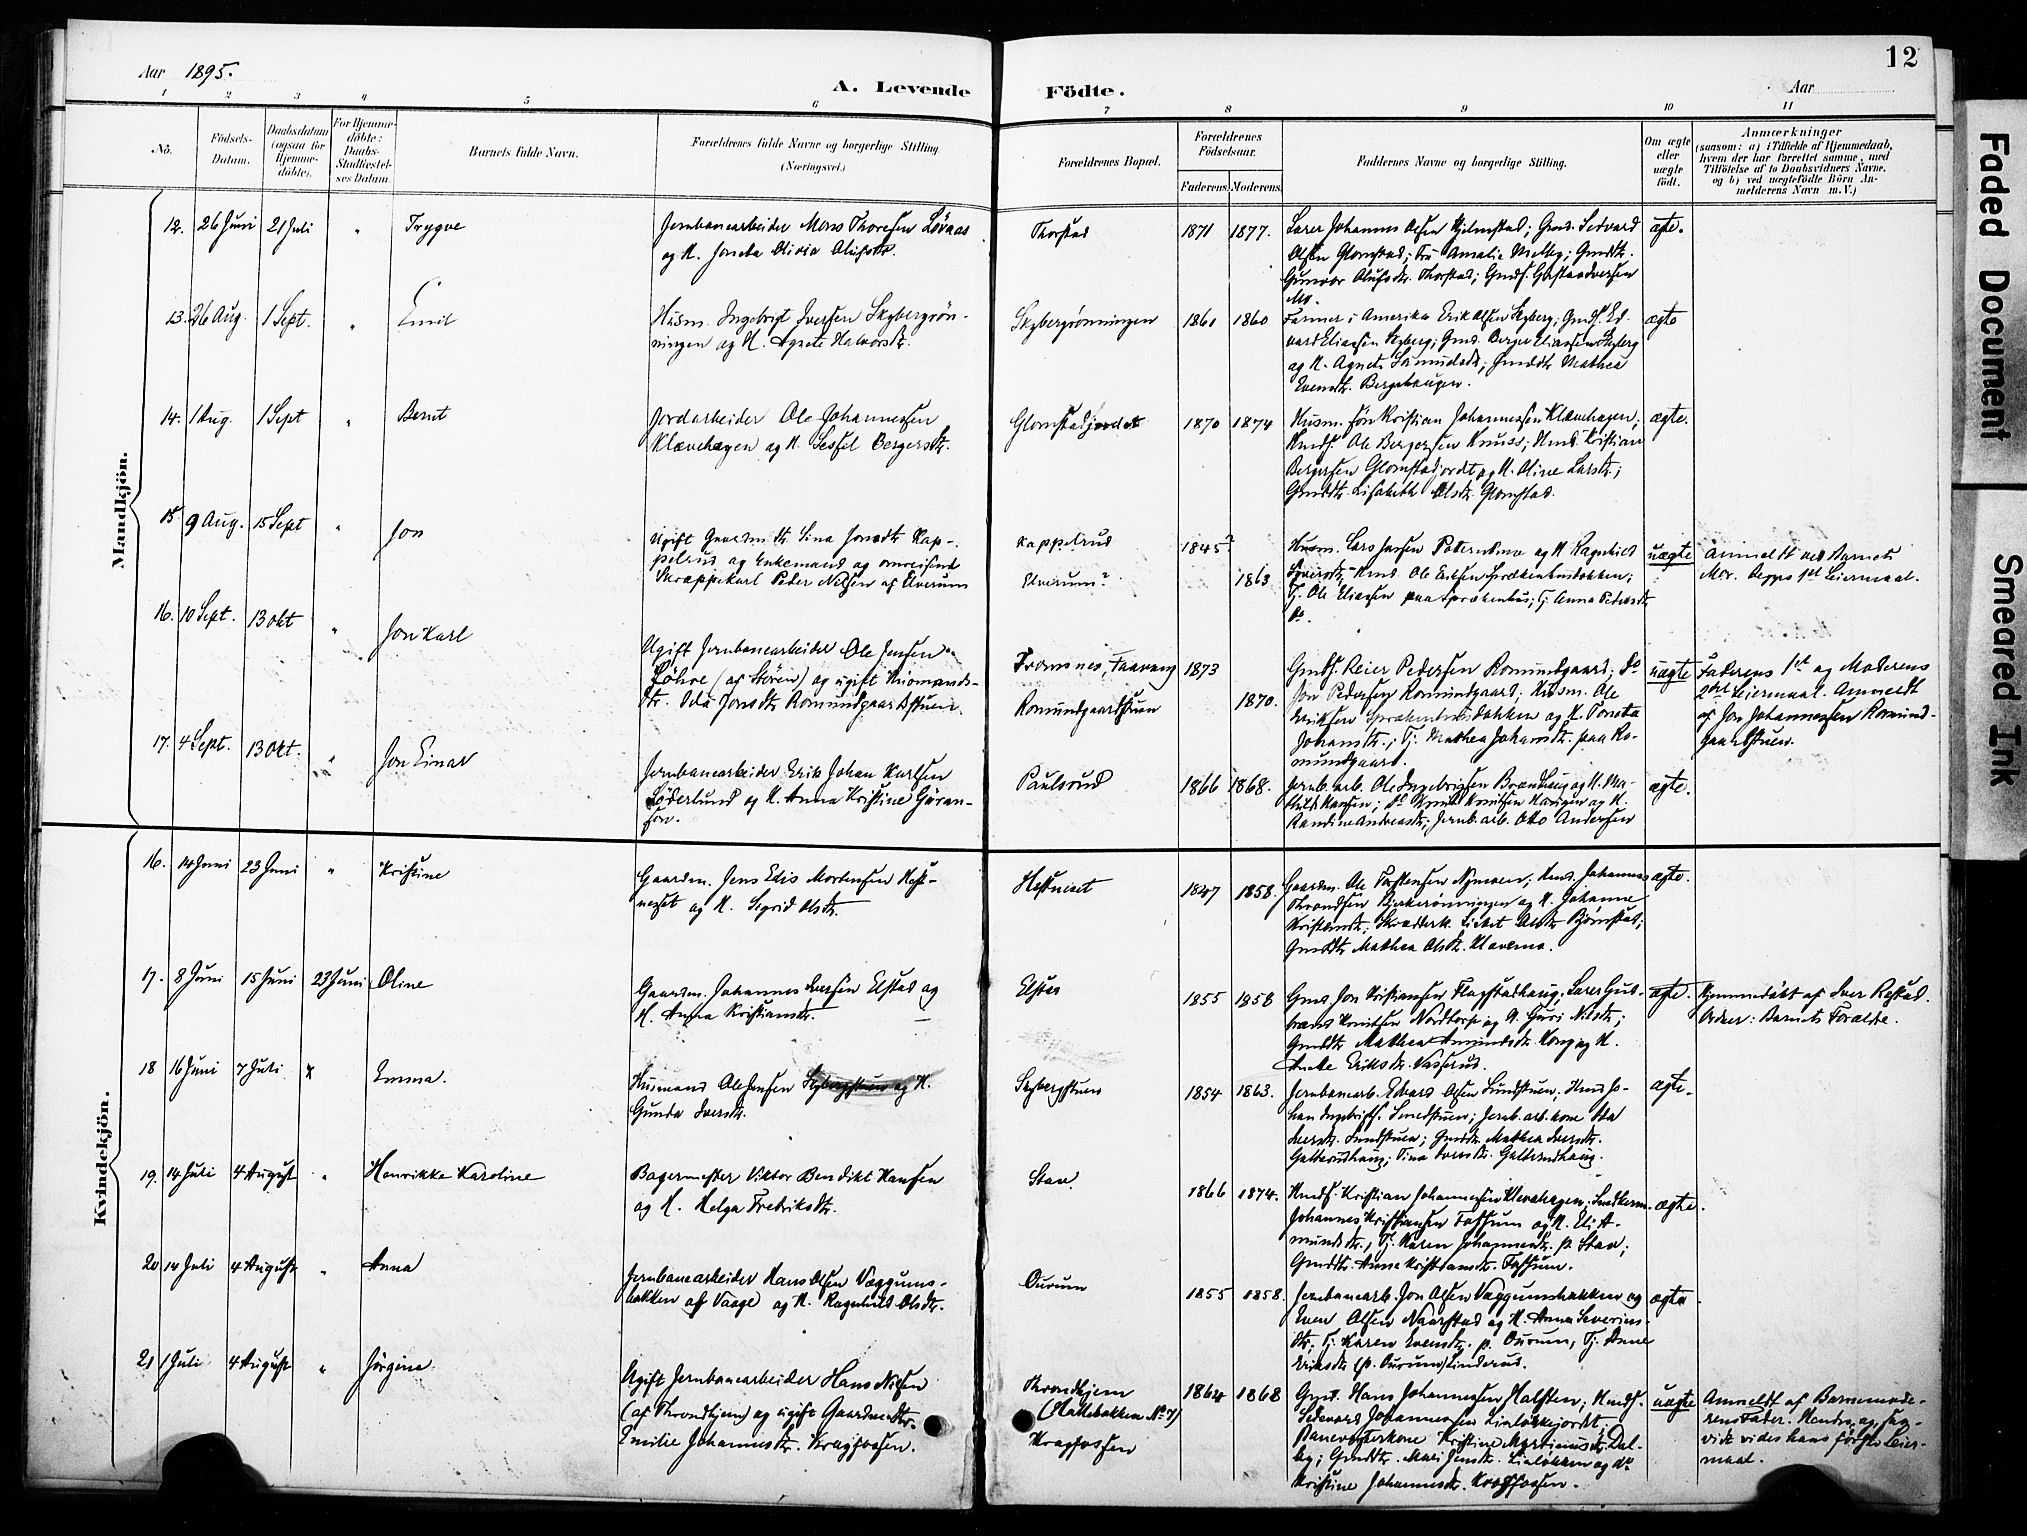 Aar 1895.
A. Levende Födte.
Aar
12
1 2 3 4 5 6 7 8 9 10 11
No.
Födsels-
Datum.
Daabsdatum
(ogsaa for
Hjemme-
döbte).
For Hjemme-
döbte:
Daabs-
Stadfæstel-
ses Datum.
Barnets fulde Navn.
Forældrenes fulde Navne og borgerlige Stilling
(Næringsvei.)
Forældrenes Bopæl.
Forældrenes
Födselsaar.
Faderens. Moderens.
Faddernes Navne og borgerlige Stilling.
Om ægte
eller
uægte
födt.
Anmærkninger
(saasom: a) i Tilfælde af Hjemmedaab,
hvem der har forrettet samme, med
Tilföielse af to Daabsvidners Navne,
og b) ved uægtefödte Börn An-
melderens Navn m. V.)
Mandkjön.
12. 26 Juni 21 Juli " Trygve
Jernbanearbeider Mons Thoresen Løvaas
og H. Joneta Olivia Olufsdtr.
Thorstad 1871 1877.
Lærer Johannes Olsen Hjelmstad; Gmd. Sedvard
Olsen Glomstad; Fru Amalie Melby; Gmdtr.
Gunvor Olufsdtr. Thorstad; Gmds.
Mo.
ægte.
13. 26 Aug. 1 Sept. " Emil
Husm. Ingebrigt Iversen Skybergrøn-
ningen og H. Agnete Halvorsdtr.
Skybergrønningen 1861 1860
Farmer i Amerika Erik Olsen Skyberg; Gmds. Ed-
vard Eliassen Skyberg; Gmd. Berger Eliassen Skyberg
og H. Agnete Samuelsdtr; Gmdtr Mathea
Evensdtr. Bergehaugen.
ægte
14. 1 Aug. 1 Sept " Bernt
Jordarbeider Ole Johannessen
Klævehagen og H. Sessel Bergersdtr.
Glomstadjordet 1870 1874
Husm. søn Kristian Johannessen Klævehagen;
Hmds. Ole Bergersen Knuss; Hmd. Kristian
Bergersen Glomstadjordt og H. Oline Larsdtr;
Gmddtr. Lisabeth Olsdtr. Glomstad.
ægte.
15. 9 Aug. 15 Sept " Jon
Ugift Gaardm. dtr. Sina Jonsdtr Kap-
pelrud og Enkemand og omreisende
Skræppekarl Peder Nilsen af Elverum
Kappelrud
Elverum?
1845? 1863
Husm. Lars og H. Ragnhild
Iversdtr; Hmd. Ole Eriksen Sprækenhusbakken;
Tj. Ole Eliassen paa Sprækenhus; Tj. Anna Pedersdtr
do.
uægte
Anmeldt ved Barnets
Mor. Begges 1st Leiermaal.
16. 10 Sept. 13 Okt " Jon Karl
Ugift Jernbanearbeider Ole Jensen
(af Støren) og ugift Husmands-
dtr. Oda Jonsdtr Romundgaardstuen.
Tromsnes, Faavang
Romundgaardstuen
1873 1870.
Gmds. Reier Pedersen Romundgaard; do
Jon Pedersen Romundgaard; Husm. Ole
Eriksen Sprækenhusbakken og H. Toneta
Johansdtr.; Tj. Mathea Johansdtr. paa Ro-
mundgaard.
uægte
Faderens 1st og Moderens
2det Leiermaal. Anmeldt
af Jon Johannessen Romund-
gaardstuen.
17. 4 Sept. 13 Okt. " Jon Einar
Jernbanearbeider Erik Johan Karlsen
Söderlund og H. Anna Kristine Göran-
son.
Paulsrud 1866 1868.
Jernb. arb. Ole Ingebrigtsen Brændhaug og H. Ma-
thilde Hansen; do Knud Knudsen Haugen og H.
Randine Andreasdtr; Jernb. arb. Otto Andersen
ægte.
Kvindekjön.
16. 14 Juni 23 Juni " Kristine
Gaardm. Jens Edis Mortensen Hest-
næset og H. Sigrid Olsdtr.
Hestneset 1847 1858.
Gaardm. Ole Torstensen Nymoen; Hmd. Johannes
Throndsen Bjerkerönningen og H. Johanne
Kristensdtr; Skrædderk. Lisbet Olsdtr Bjørnstad;
Gmddtr Mathea Olsdtr. Klæverne.
ægte.
17. 8 Juni 15 Juni 23 Juni Oline
Gaardm. Johannes Iversen Elstad og
H. Anna Kristiansdtr.
Elstad 1855 1858
Gmd. Jon Kristiansen Flagstadhaug; Lærer Gud-
brand Knudsen Nordtorp og H. Guri Nilsdtr;
Gmddtr Mathea Amundsdtr Haug og H.
Anne Eriksdtr. Vasrud.
ægte.
Hjemmedøbt af Iver Rolstad.
Vidner: Barnets Forældre.
18 16 Juni 7 Juli " Emma.
Husmand Ole Jensen Skybergstuen og H.
Gunda Iversdtr.
Skybergstuen 1854 1863.
Jernbanearb. Edvard Olsen Lundstuen; Hmd Jo-
han Ingebrigts. Smedstuen; Jernb. arb. kone Ida
Iversdtr. Lundstuen; Gmddtr. Mathea Iversdtr.
Galterudhaug; Tina Iversdtr. Galterudhaug.
ægte.
19. 14 Juli 4 August " Henrikke Karoline
Bagermester Viktor Benedikt Hansen
og H. Helga Fredriksdtr.
Stav. 1866 1874.
Hmds. Kristian Johannessen Klevehagen; Snedkerm.
Johannes Kristiansen Fossum og H. Eli A-
mundsdtr., Tj. Karen Johannesdtr. p. Stav;
Gmddtr. Anna Kristiansdtr. Fossum.
ægte.
20 14 Juli 4 August " Anna
Jernbanearbeider Hans Olsen Vaggums-
bakken af Vaage og H. Ragnhild Olsdtr.
Ourum 1855 1858.
Jernbanearb. Jon Olsen Vaggumsbakken og
Even Olsen Naarstad og H. Anna Severins-
dtr, Tj. Karen Evensdtr. p. Ourum, Tj. Anne
Eriksdtr (p. Ourum) Linderud.
ægte.
21 1 Juli 4 August " Jörgine.
Ugift Jernbanearbeider Hans Nilsen
(af Throndhjem) og ugift Gaardmandsdtr.
Emilie Johannesdtr. Kragfossen.
Throndhjem
(Møllebakken No 7)
Kragfossen
1864 1868
Gmd. Hans Johannessen Halsten; Hmds.
Sedevard Johannessen Linløkkejordet;
Banevogterkone Kristine Martinusdtr Dal-
by; Gmddtr. Mari Jensdtr. Linløkken og do
Kristine Johannesdtr. Kragfossen.
uægte
Anmeldt af Barnemode-
rens Fader. Hendes og, saa-
vidt vides hans første Leier-
maal.
Faded Document
Smeared Ink